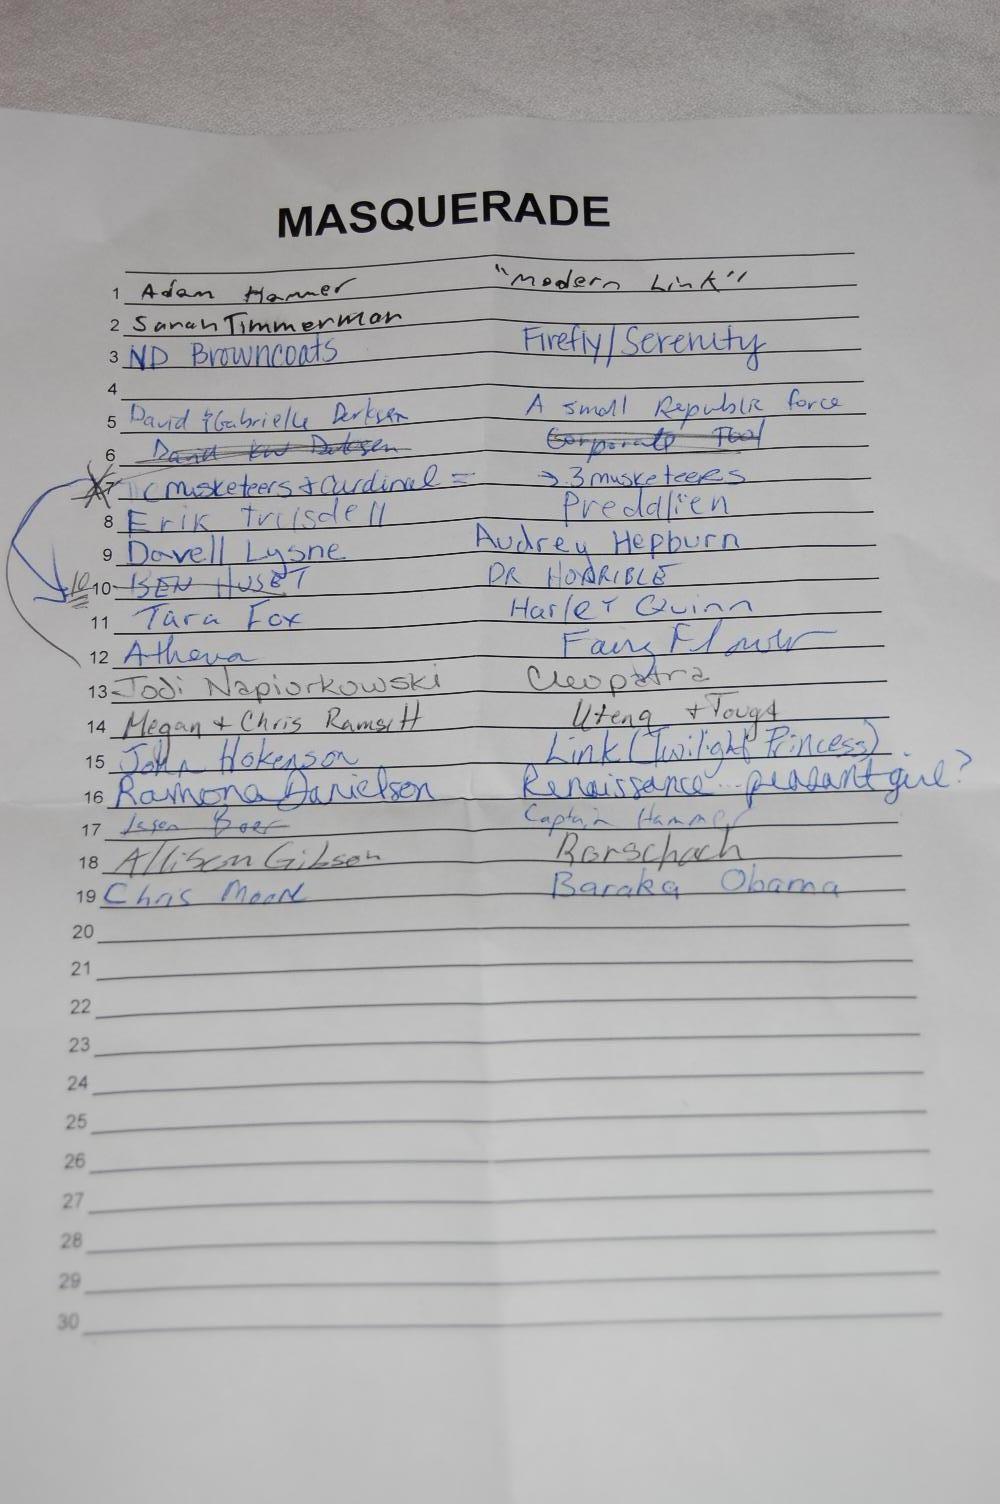 MASQUERADE
1 Adam Hammer "Modern Link"
2 Sarah Timmerman
3 ND Browncoats Firefly/Serenity
4
5 David & Gabrielle Derksen A small Republic force
6 David Derksen Corporate Tool
7 musketeers + Cardinal = → 3 musketeers
8 Erik Predalien
9 Davell Lysne Audrey Hepburn
10 10 BEN HUSET DR HORRIBLE
11 Tara Fox Harley Quinn
12 Athena Fairy Flower
13 Jodi Napiorkowski Cleopatra
14 Megan + Chris Utena + Touga
15 John Hokenson Link (Twilight Princess)
16 Ramona Danielson Renaissance... peasant girl?
17 Captain Hammer
18 Allison Gibson Rorschach
19 Chris Baraka Obama
20
21
22
23
24
25
26
27
28
29
30